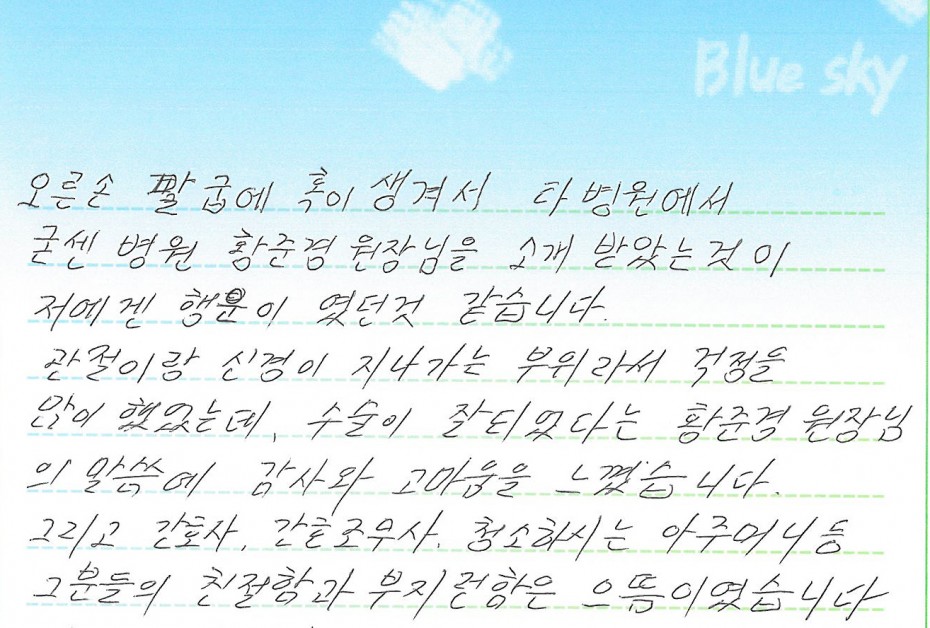 Blue sky
오른손 팔굽에 혹이 생겨서 타 병원에서
굳센 병원 황준경 원장님을 소개 받았는것이
저에겐 행운이 였던것 같습니다.
관절이랑 신경이 지나가는 부위라서 걱정을
많이 했었는데, 수술이 잘되었다는 황준경 원장님
의 말씀에 감사와 고마움을 느꼈습니다.
그리고 간호사, 간호조무사, 청소하시는 아주머니 등
그분들의 친절함과 부지런함은 으뜸이였습니다